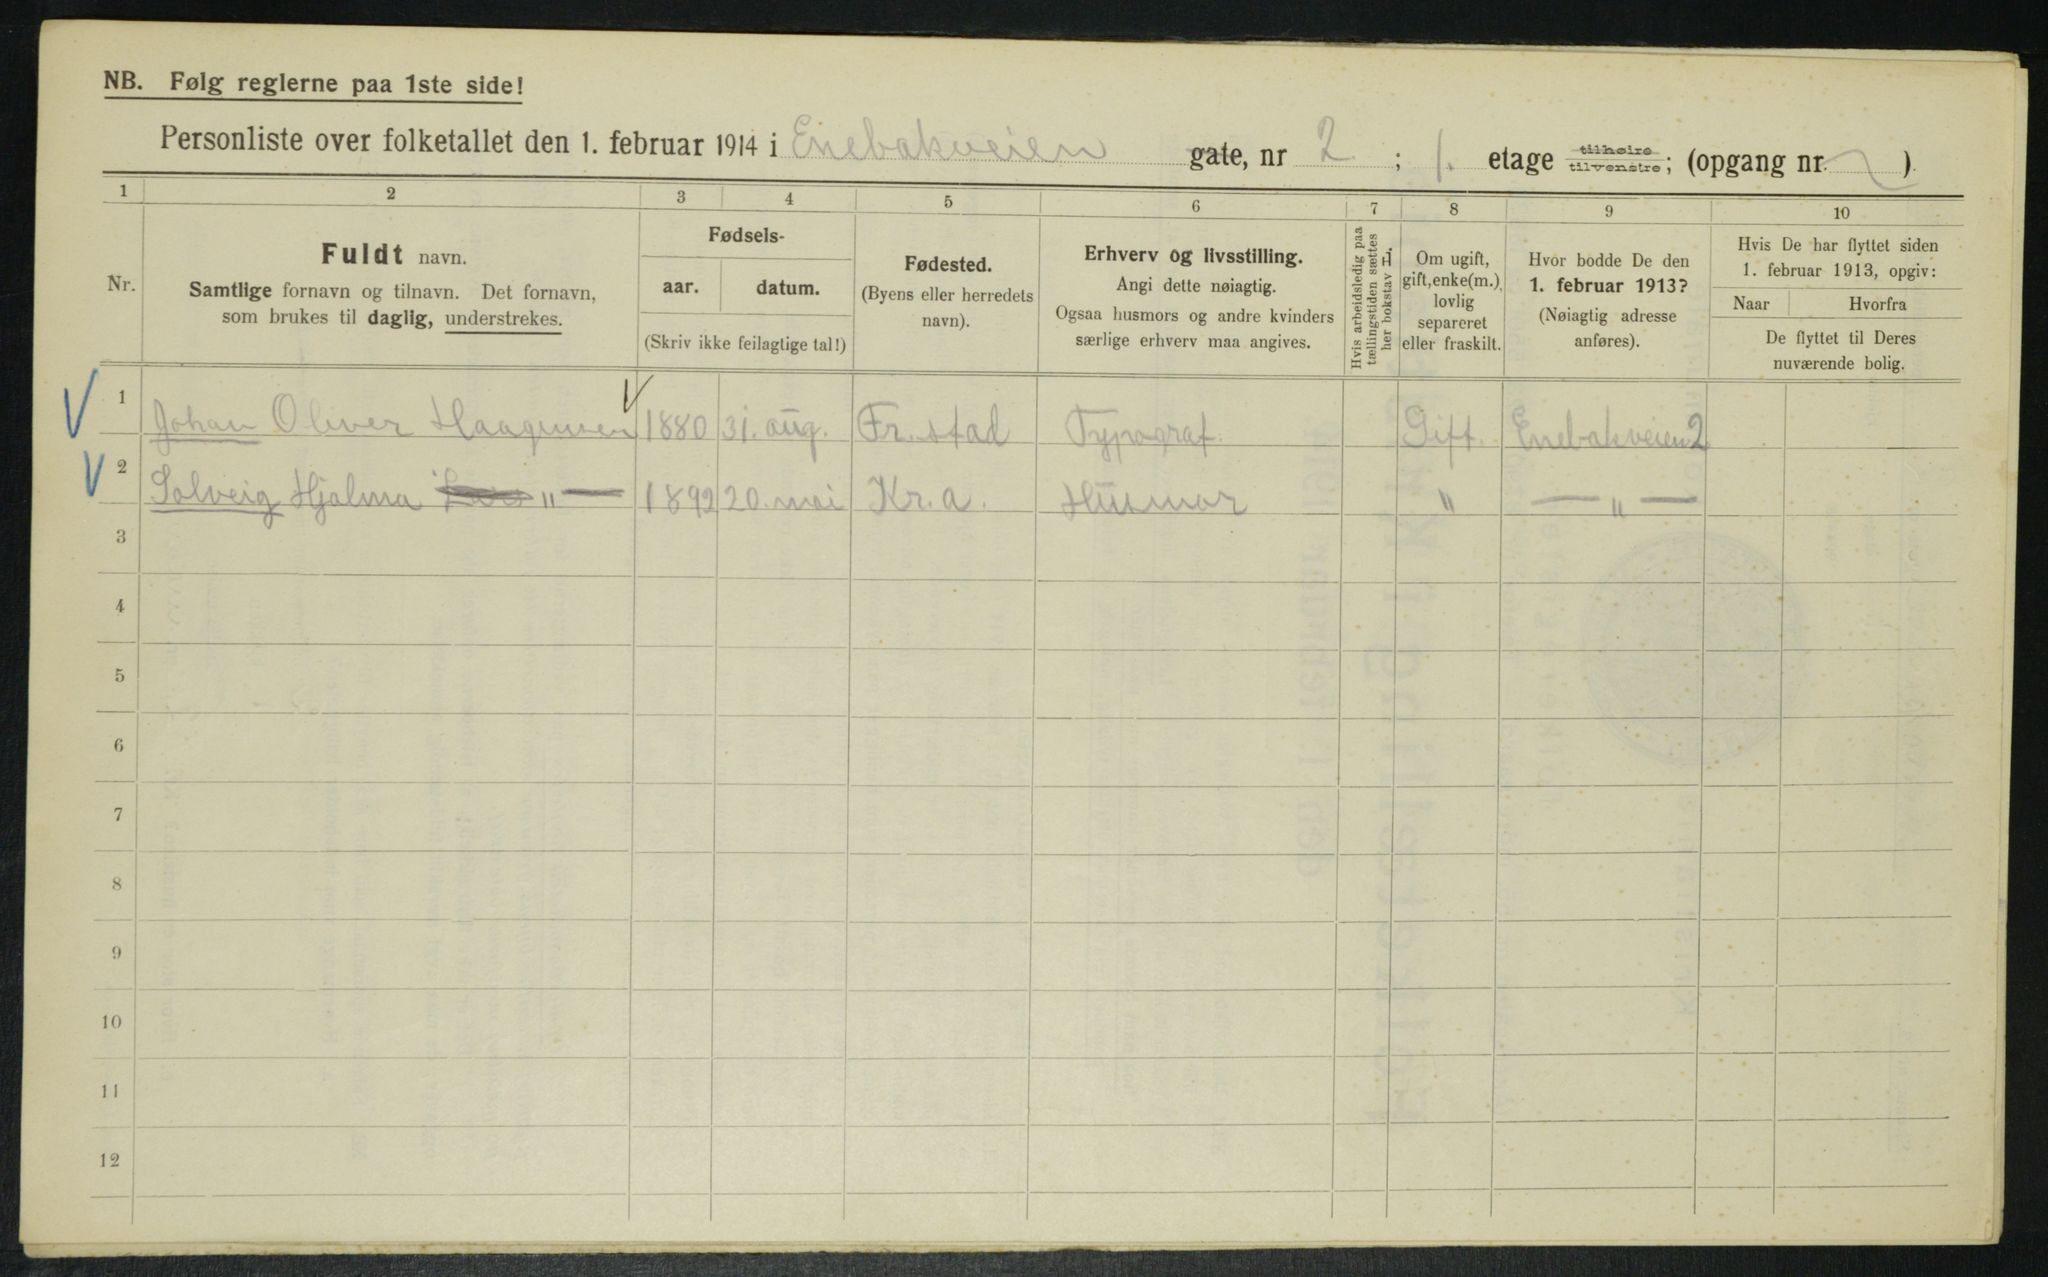 NB. Følg reglerne paa 1ste side!
Personliste over folketallet den 1. februar 1914 i Enebakveien gate, nr 2 ; 1. etage tilhøire tilvenstre; (opgang nr. )
1 2 3 4 5 6 7 8 9 10
Nr.
Fuldt navn.
Samtlige fornavn og tilnavn. Det fornavn,
som brukes til daglig, understrekes.
Fødsels-
aar. datum.
(Skriv ikke feilagtige tal!)
Fødested.
(Byens eller herredets
navn).
Erhverv og livsstilling.
Angi dette nøiagtig.
Ogsaa husmors og andre kvinders
særlige erhverv maa angives.
Hvis arbeidsledig paa
tællingstiden sættes
her bokstav L.
Om ugift,
gift, enke(m.),
lovlig
separeret
eller fraskilt.
Hvor bodde De den
1. februar 1913?
(Nøiagtig adresse
anføres).
Hvis De har flyttet siden
1. februar 1913, opgiv:
Naar Hvorfra
De flyttet til Deres
nuværende bolig.
1 Johan Oliver Haagensen 1880 31. aug. Fr.stad Typograf. Gift. Enebakveien 2
2 Solveig Hjalma " — 1892 20. mai Kr.a. Husmor " — " —
3
4
5
6
7
8
9
10
11
12